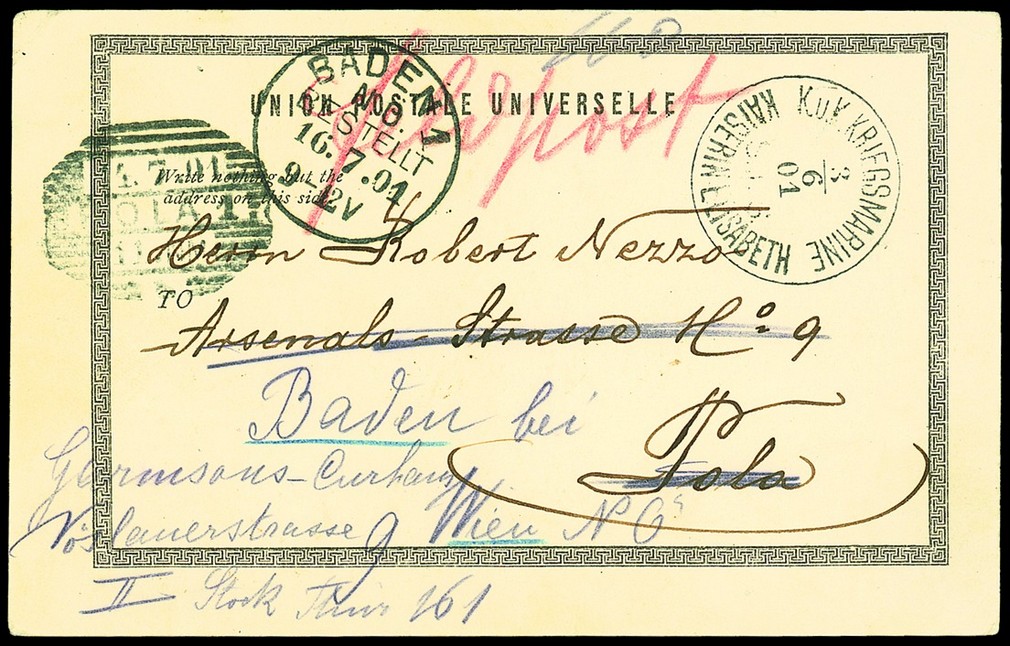 Feldpost
UNION POSTALE UNIVERSELLE
BADEN 1
N.Ö.
BESTELLT
16.7.01
9-12V
K.u.K. KRIEGSMARINE
KAISERIN ELISABETH
3
6
01
7.01
POLA 1
Write nothing but the
address on this side.
TO
Herrn Robert Nezzo
Arsenals-Strasse No 9
Pola
Baden bei
Wien N
Garnisons-Curhaus
Vöslauerstrasse 9
II Stock Thür 161